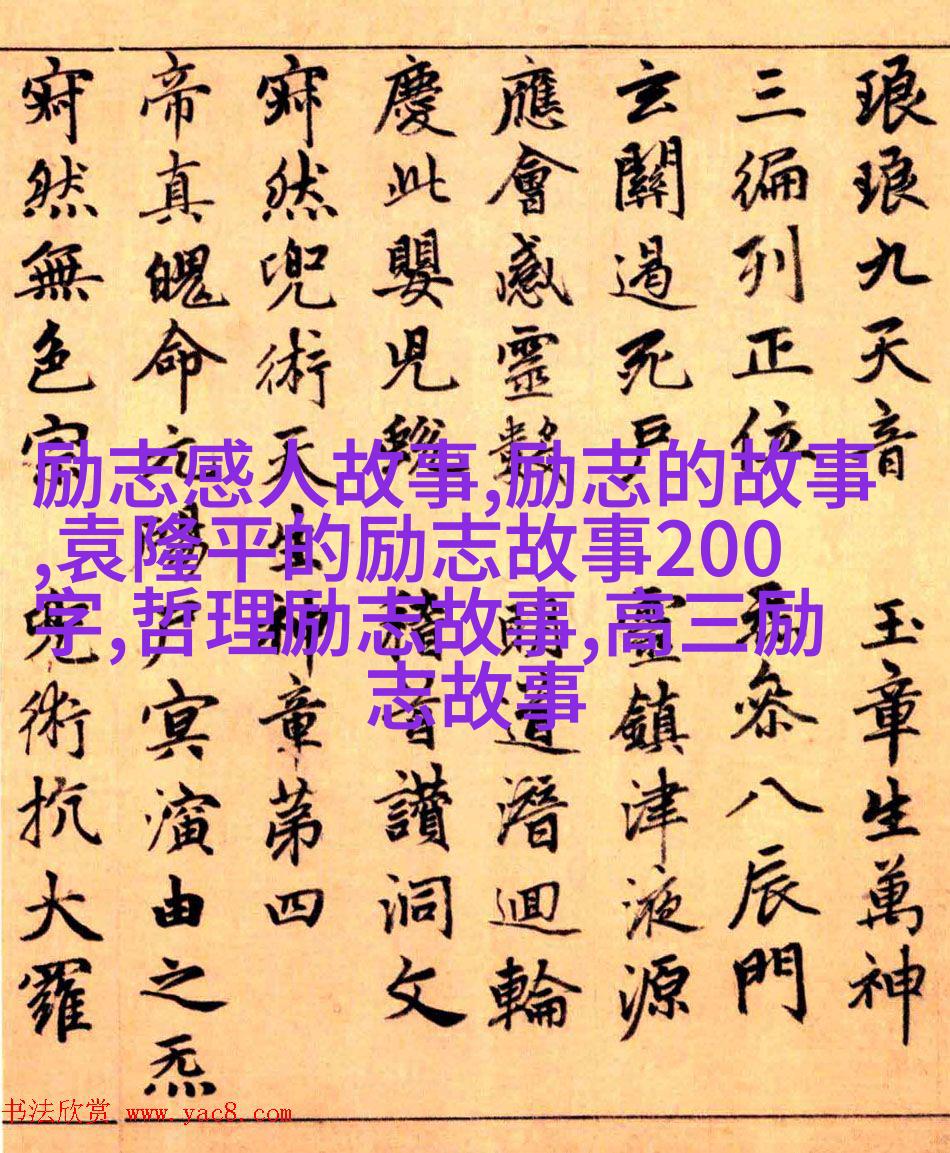 琅琅九天音 玉章生萬神
三徧列正位 叅八辰門
玄關過死戶 靈鎮津液源
應會感靈數 明道潛迴輪
慶此嬰兒 積善讚洞文
寂然兜術天生神章第四
帝真魄命元陽戶冥演由之炁
寂然無色宗 兜術抗大羅
励志感人故事,励志的故事
,袁隆平的励志故事200
字,哲理励志故事,高三励
志故事
书法欣赏 www.yac8.com